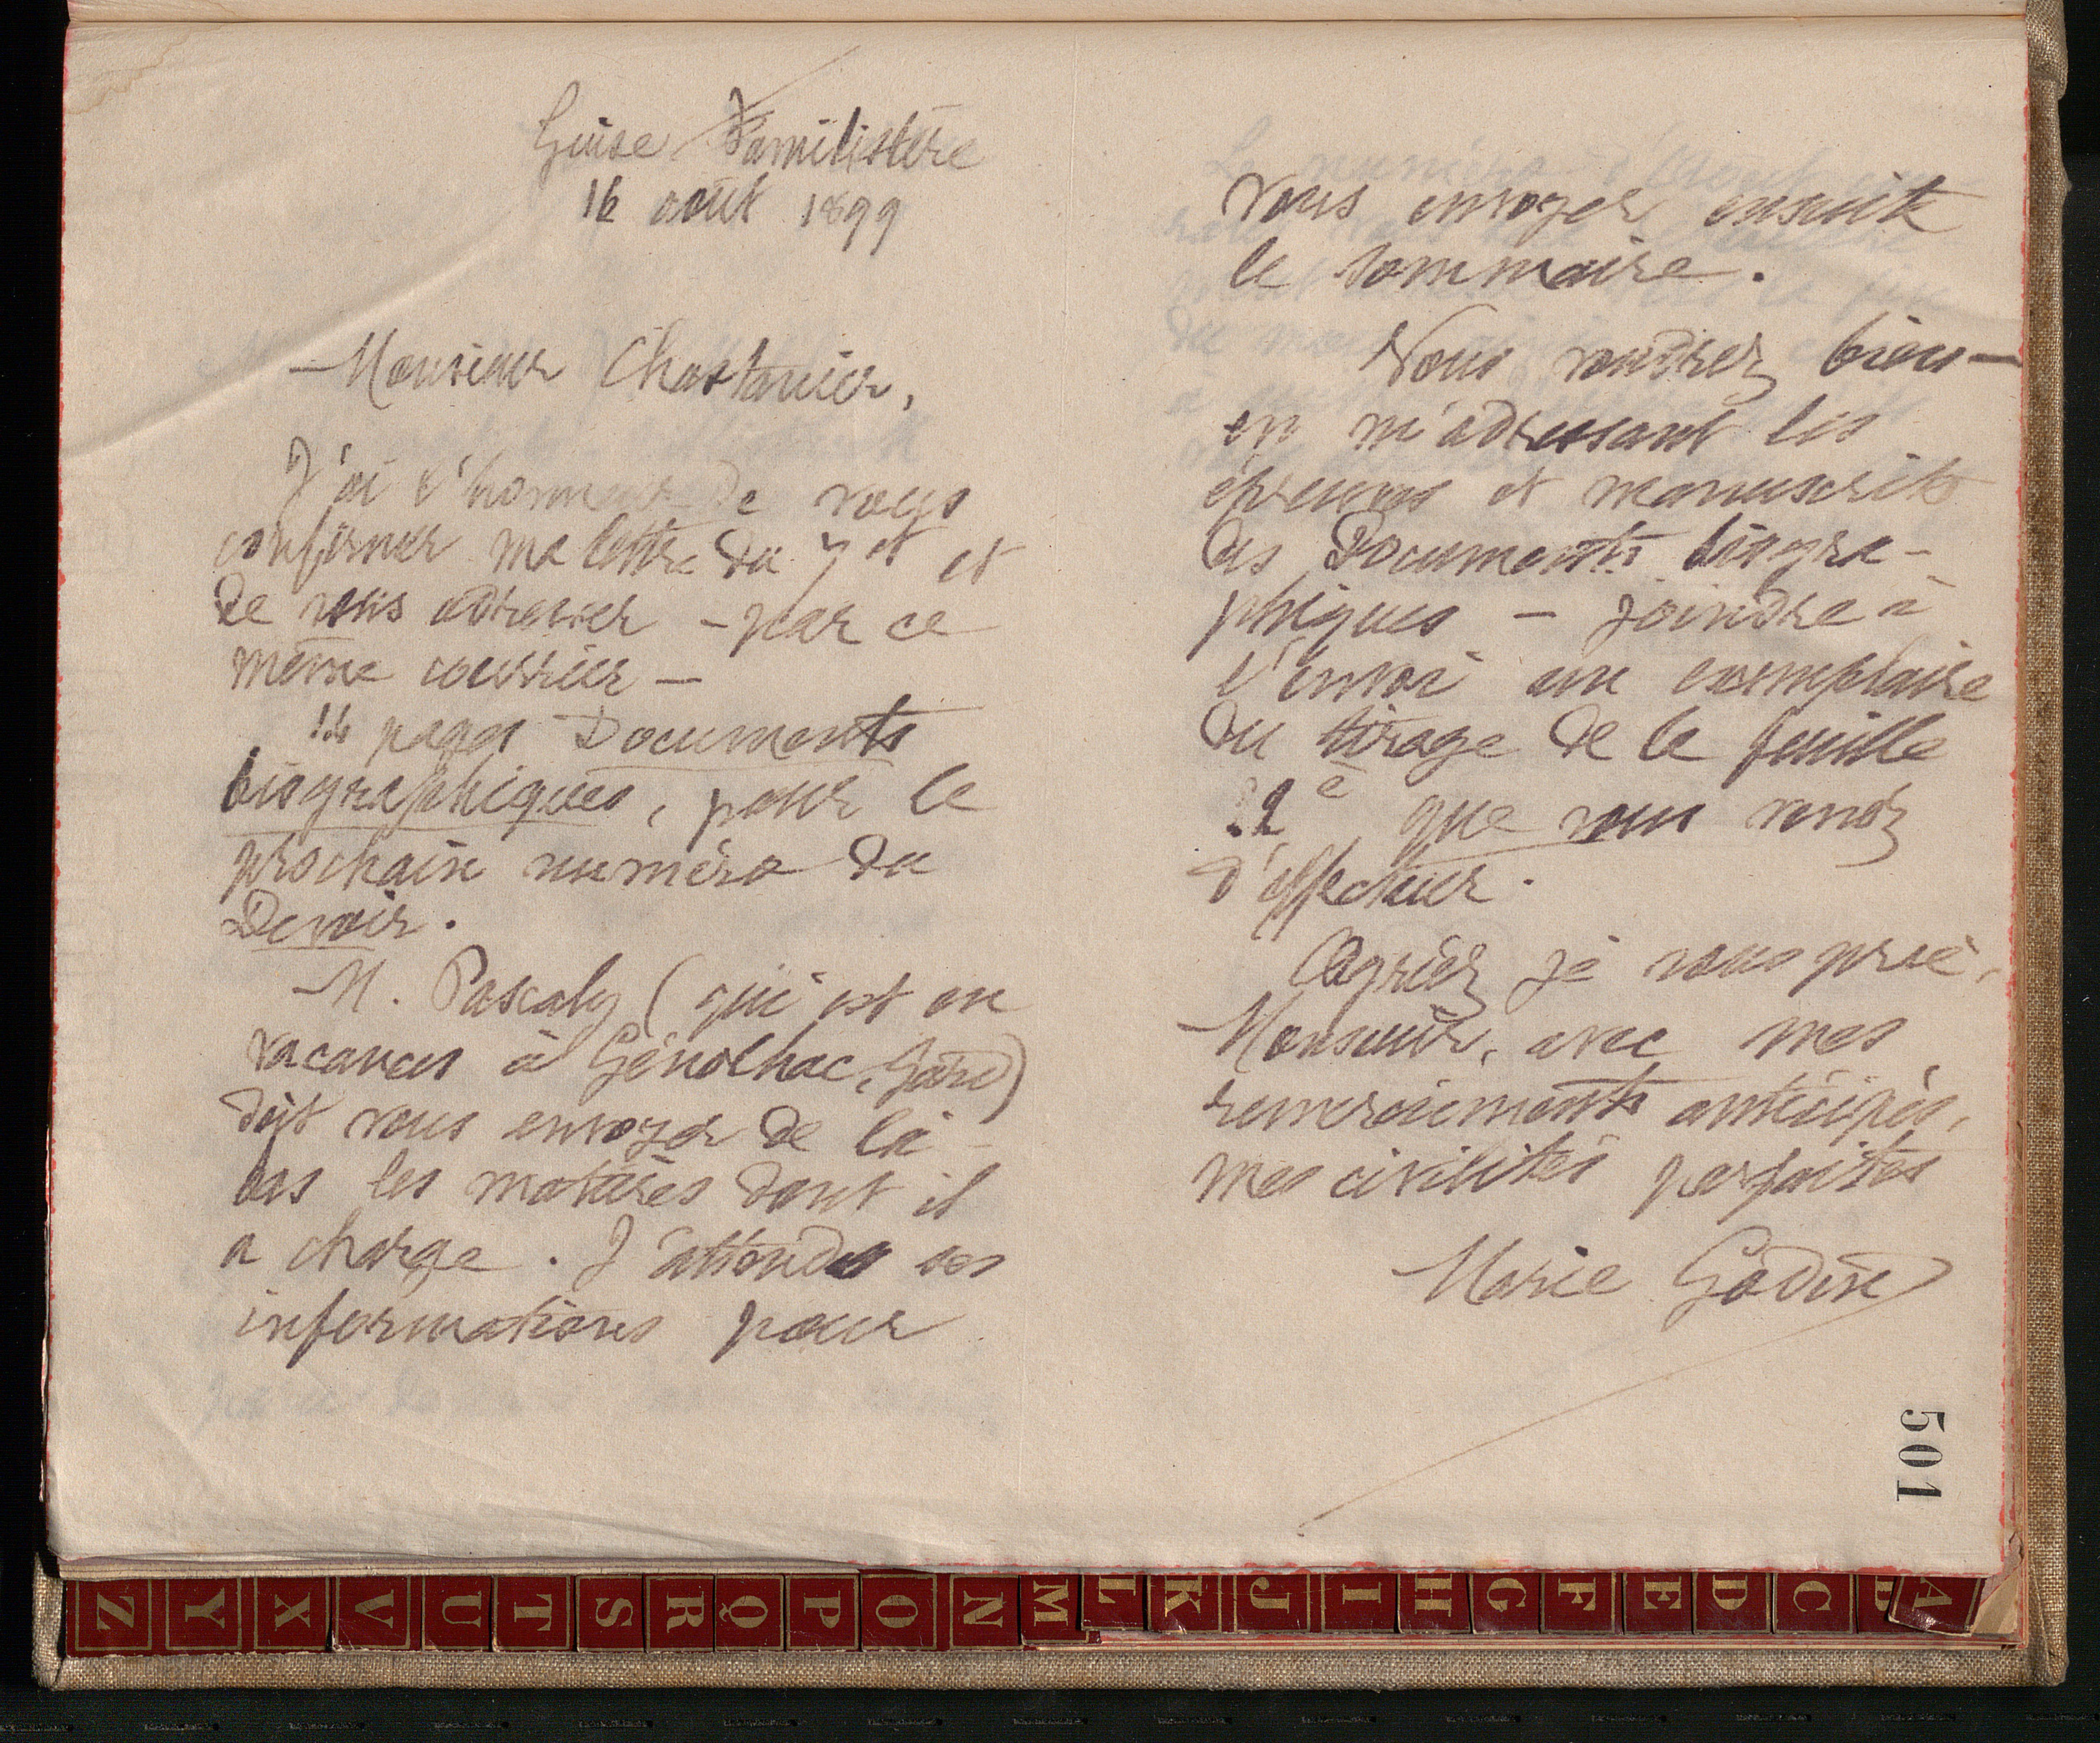 Guise Familistère
16 août 1899
Monsieur Chastanier,
J'ai l'honneur de vous
confirmer ma lettre du 7 ct et
de vous adresser - par ce
même courrier -
14 pages Documents
biographiques, pour le
prochain numéro du
Devoir.
M. Pascaly (qui est en
vacances à Génolhac, Gard)
doit vous envoyer de là -
bas les matières dont il
a charge. J'attends ses
informations pour
vous envoyer ensuite
le sommaire.
Vous voudrez bien -
en m'adressant les
épreuves et manuscrits
des Documents biogra-
phiques - joindre à
l'envoi un exemplaire
du tirage de la feuille
e que vous venez
d'effectuer.
Agréez je vous prie,
Monsieur, avec mes
remerciements anticipés,
mes civilités parfaites
Marie Godin
501
Z Y X V U T S R Q P O N M L K J I H G F E D C B A